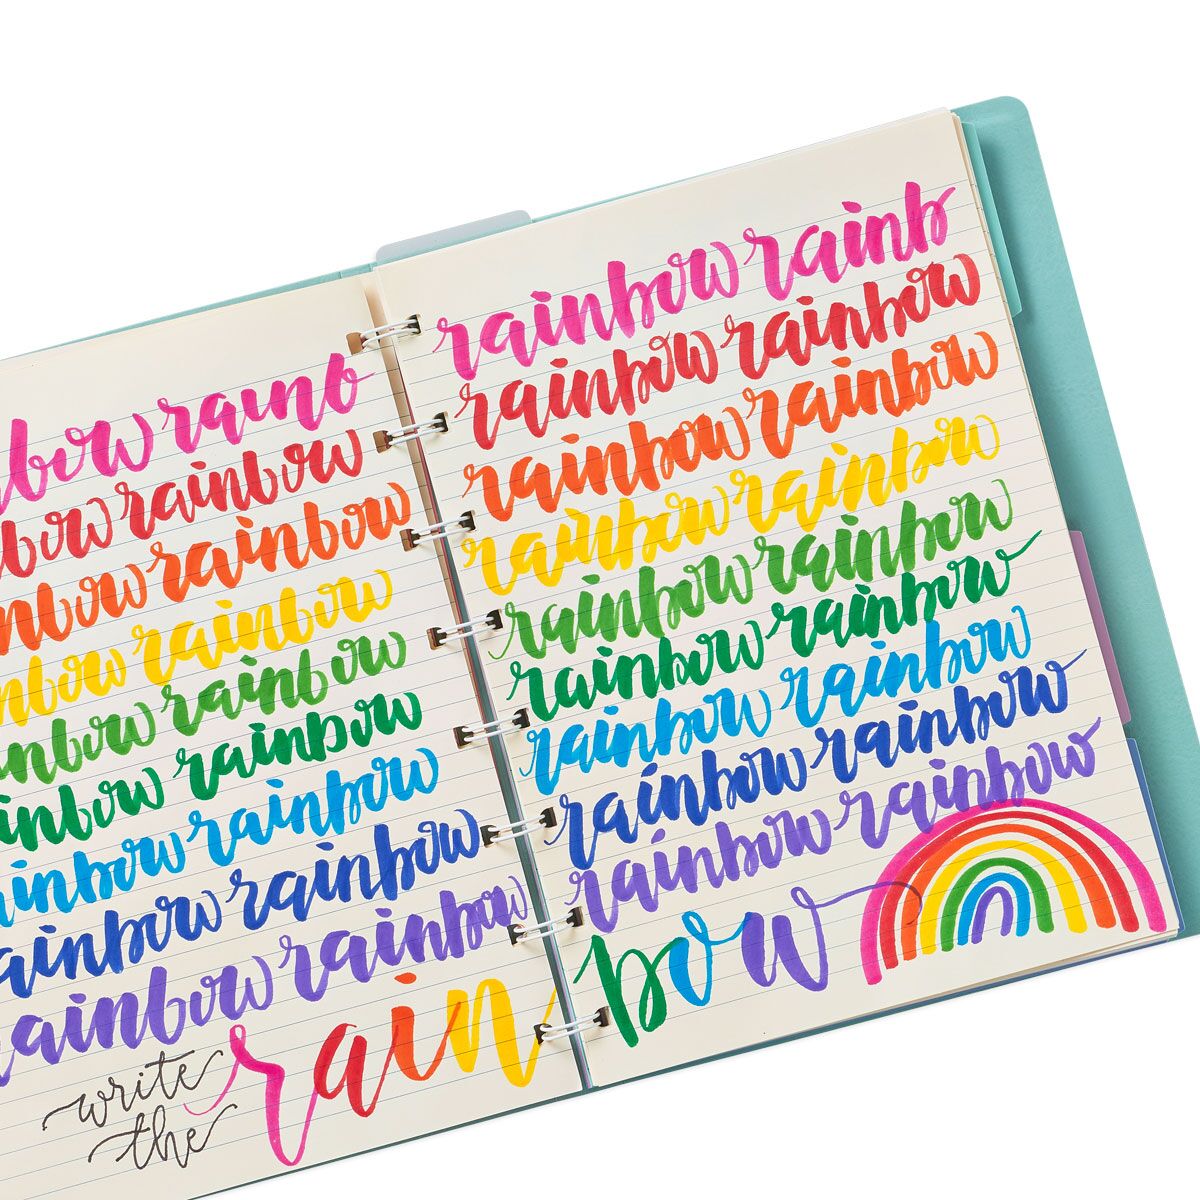 nbow rainb
bow rainbow
nbow rainbow
nbow rainbow
inbow rainbow
inbow rainbow
ainbow rainbow
ainbow rainbow
ainbow rainbow
rainbow rainb
rainbow rainbow
rainbow rainbow
rainbow rainbow
rainbow rainbow
rainbow rainbow
rainbow rainbow
rainbow rainbow
rainbow rainbow
write
the
rainbow